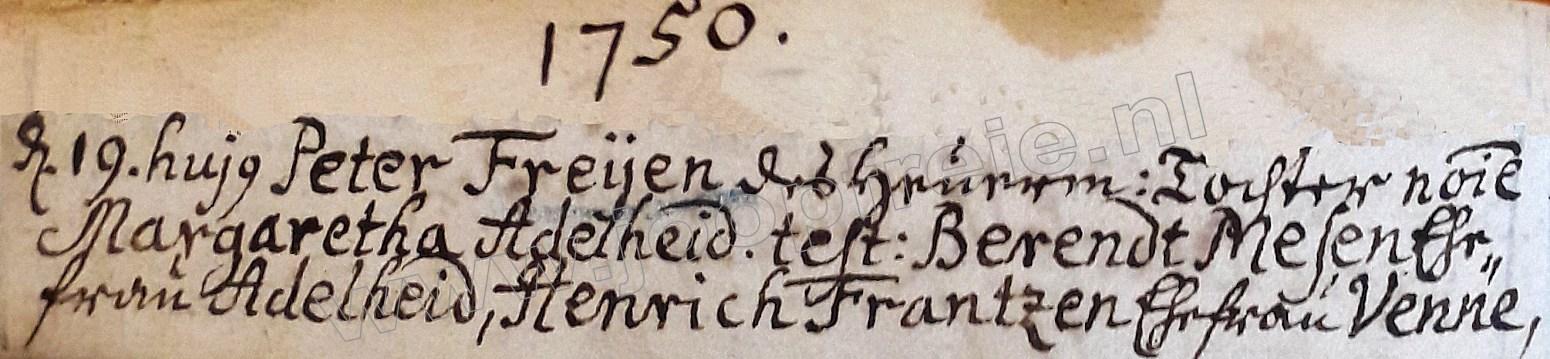 1750.
d. 19. hujg Peter Freijen des Heüerm: Tochter noie
Margaretha Adelheid. test: Berendt Mesen Ehe„
fraü Adelheid, Henrich Frantzen Ehefraü Venne,